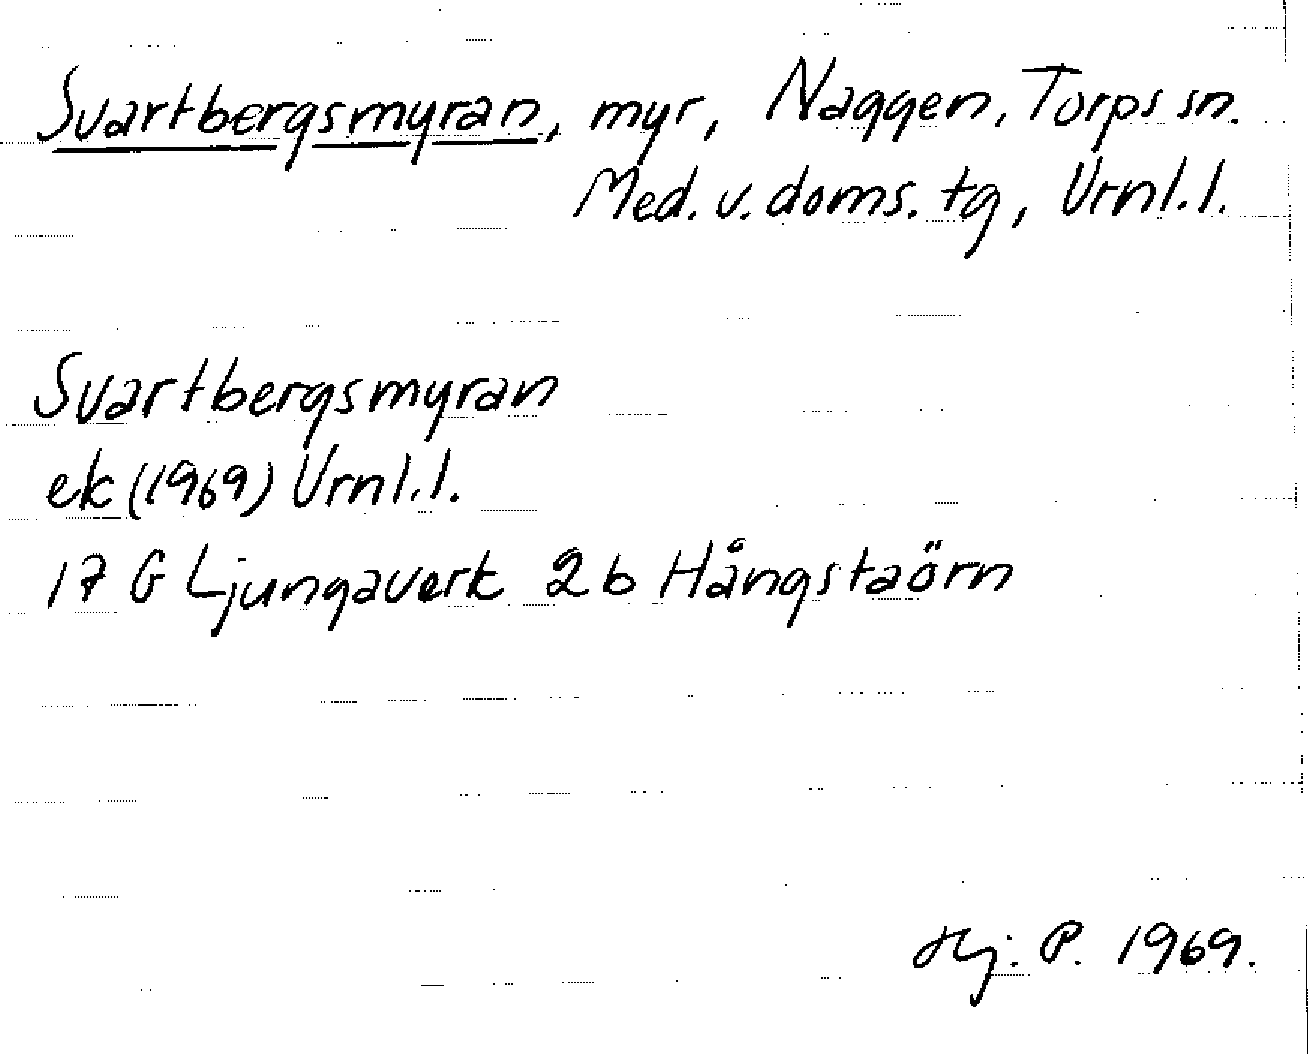 Svartbergsmyran, myr, Naggen, Torps sn.
Med. v. doms. tg, Vrnl.l.
Svartbergsmyran
ek (1969) Vrnl.l.
17 G Ljungaverk 2b Hångstaörn
Hj. P. 1969.